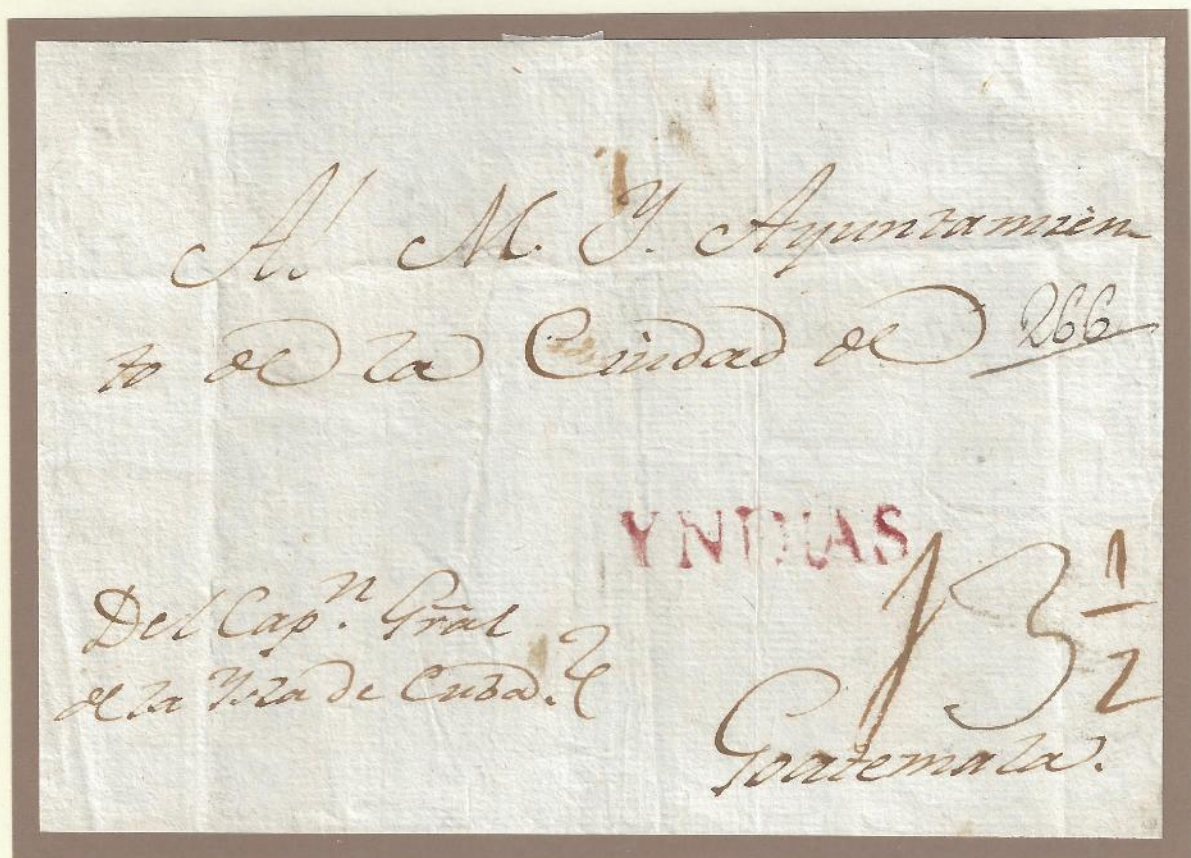 Al M. Y. Ayuntamien-
to de la Ciudad de
266
YNDIAS
13 1/2
Del Cap.n Gral
de la Ysla de Cuba.
Goatemala.